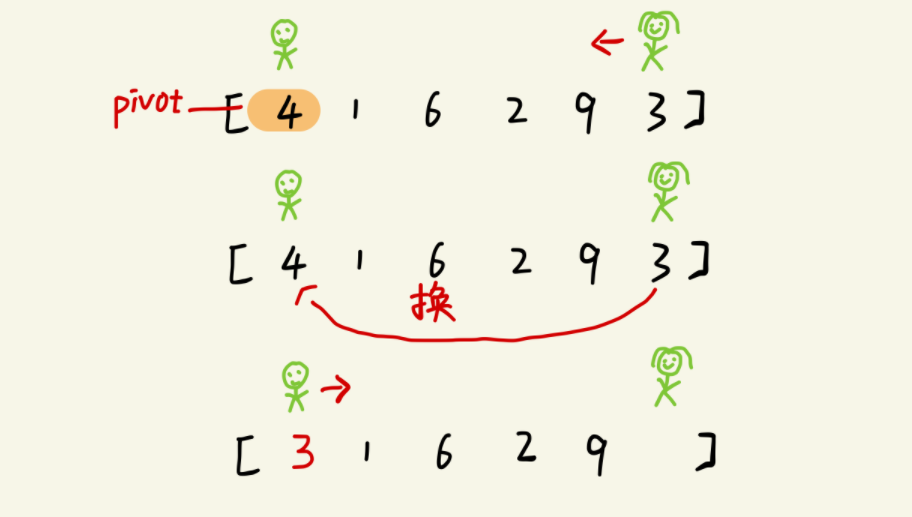 pivot [ 4 1 6 2 9 3 ]
[ 4 1 6 2 9 3 ]
换
[ 3 1 6 2 9 ]